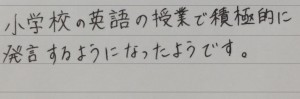 小学校の英語の授業で積極的に
発言するようになったようです。